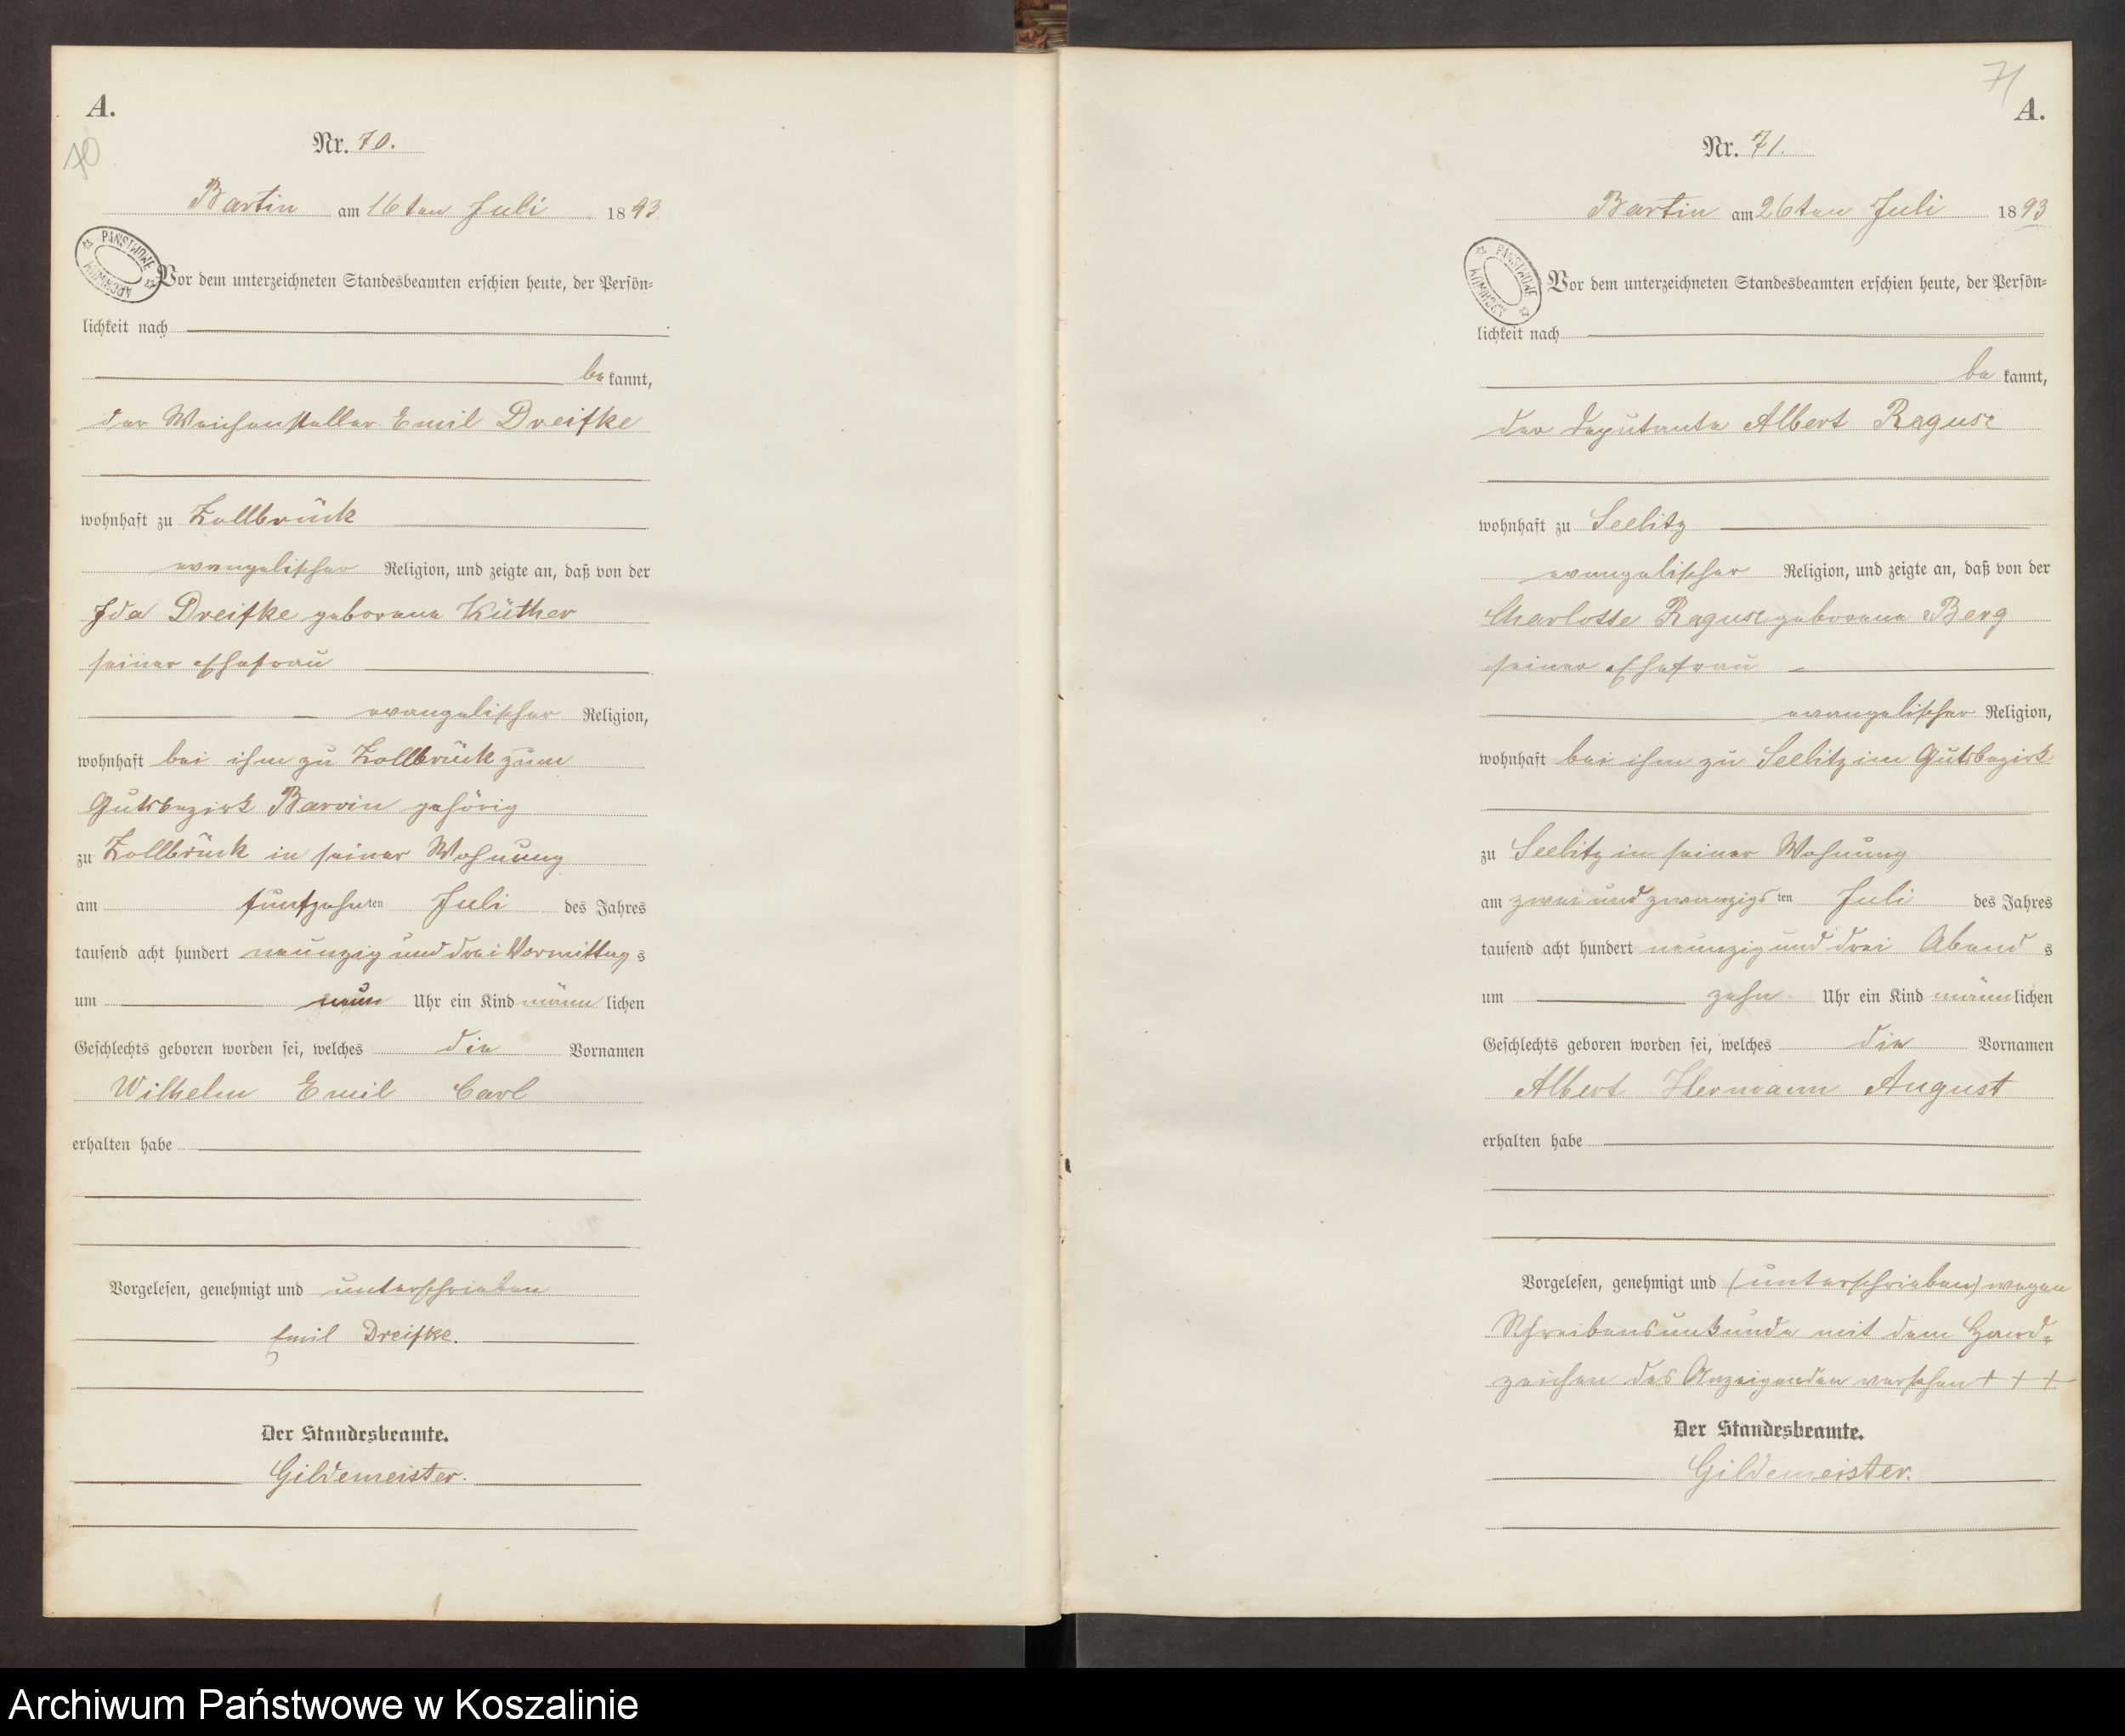 A.
70
Nr. 70.
Bartin am 16ten Juli 1893.
PAŃSTWOWE ARCHIWUM
Vor dem unterzeichneten Standesbeamten erschien heute, der Persön-
lichkeit nach
bekannt,
der Weichensteller Emil Dreifke
wohnhaft zu Zollbrück
evangelischer Religion, und zeigte an, daß von der
Ida Dreifke geborene Küther
seiner Ehefrau
evangelischer Religion,
wohnhaft bei ihm zu Zollbrück zum
Gutsbezirk Barvin gehörig
zu Zollbrück in seiner Wohnung
am fünfzehnten Juli des Jahres
tausend acht hundert neunzig und drei Vormittags
um neun Uhr ein Kind männlichen
Geschlechts geboren worden sei, welches die Vornamen
Wilhelm Emil Carl
erhalten habe
Vorgelesen, genehmigt und unterschrieben
Emil Dreifke.
Der Standesbeamte.
Gildemeister.
71
A.
Nr. 71.
Bartin am 26ten Juli 1893
PAŃSTWOWE ARCHIWUM
Vor dem unterzeichneten Standesbeamten erschien heute, der Persön-
lichkeit nach
bekannt,
der Deputante Albert Raguse
wohnhaft zu Seelitz
evangelischer Religion, und zeigte an, daß von der
Charlotte Raguse geborene Berg
seiner Ehefrau
evangelischer Religion,
wohnhaft bei ihm zu Seelitz im Gutsbezirk
zu Seelitz in seiner Wohnung
am zwei und zwanzigsten Juli des Jahres
tausend acht hundert neunzig und drei Abends
um zehn Uhr ein Kind männlichen
Geschlechts geboren worden sei, welches die Vornamen
Albert Hermann August
erhalten habe
Vorgelesen, genehmigt und (unterschrieben) wegen
Schreibensunkunde mit dem Hand-
zeichen des Anzeigenden versehen + + +
Der Standesbeamte.
Gildemeister.
Archiwum Państwowe w Koszalinie